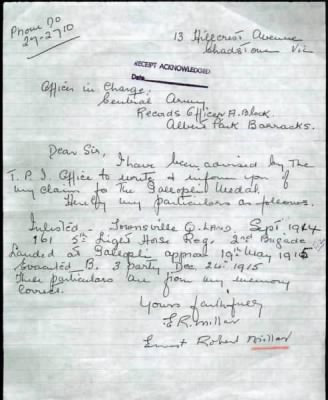 Phone No
27-2710
13 Hillcrest Avenue
Chadstone Vic
RECEIPT ACKNOWLEDGED
Date
Officer in Charge,
Central Army
Records Office A. Block.
Albert Park Barracks.
Dear Sir,
I have been advised by The
T. P. I. Office to write & inform you of
my claim to the Gallopeli Medal.
Hereby my particulars as follows.
Inlisted - Townsville Q. Land. Sept 1914
161 5th Light Horse Reg. 2nd Brigade
Landed at Gallopeli approx 19th May 1915
Evacuated B. 3 party Dec 24th 1915
These particulars are from my memory
correct.
Yours faithfully
E.R. Millar
Ernest Robert Millar